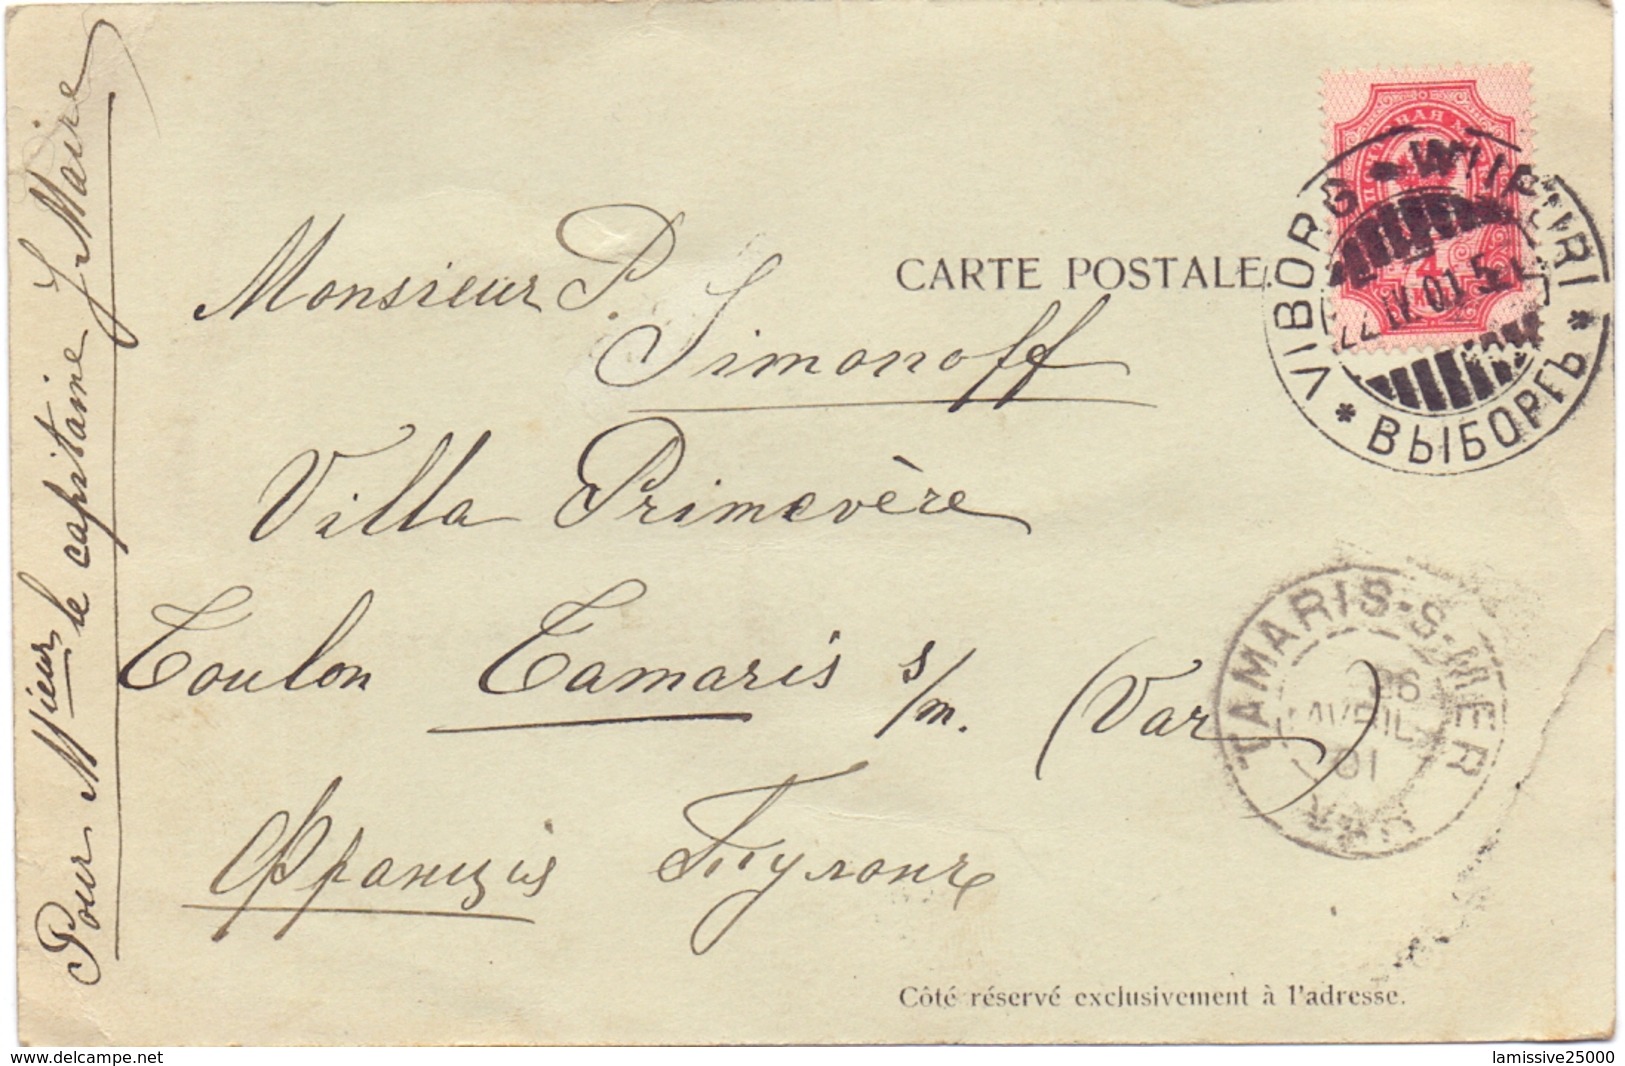 Pour Mieur le capitaine J Maire
CARTE POSTALE.
Monsieur P.
Simonoff
Villa Primevère
Toulon Tamaris s/m. (Var)
Франція Тулонъ
VIBORG WIIPURI
* ВЫБОРГЪ *
22 IV 01
4
TAMARIS-S-MER
26
AVRIL
01
VAR
Côté réservé exclusivement à l'adresse.
© www.delcampe.net
lamissive25000